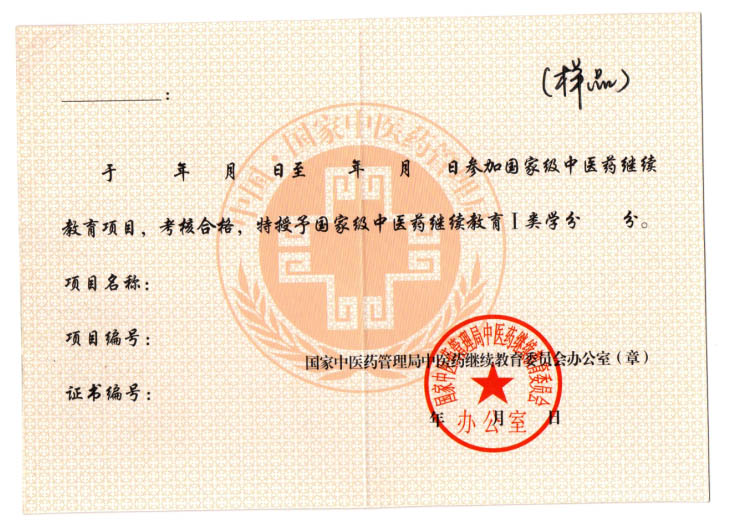 （样品）
________：
于　　年　月　日至　　年　月　日参加国家级中医药继续
教育项目，考核合格，特授予国家级中医药继续教育Ⅰ类学分　　分。
项目名称：
项目编号：
国家中医药管理局中医药继续教育委员会办公室（章）
证书编号：
年　月　日
中国·国家中医药管理局
国家中医药管理局中医药继续教育委员会
办公室